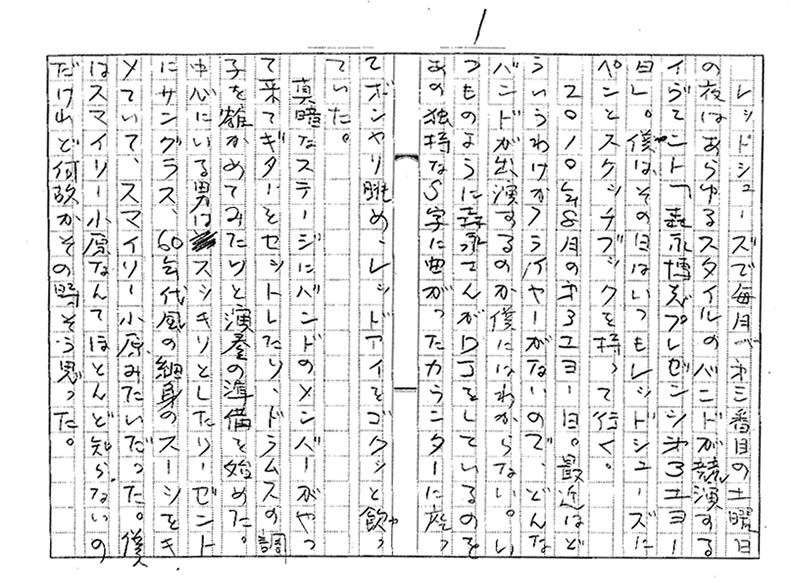 1
レッドシューズで毎月、第三番目の土曜日
の夜はあらゆるスタイルのバンドが競演する
イヴェント「森永博志プレゼンツ第3土ヨー
日」。僕は、その日はいつもレッドシューズに
ペンとスケッチブックを持って行く。
2010年8月の第3土ヨー日。最近はど
ういうわけかフライヤーがないので、どんな
バンドが出演するのか僕にはわからない。い
つものように森永さんがDJをしているのを
あの独特なS字に曲がったカウンターに座っ
てボンヤリ眺め、レッドアイをゴクンと飲っ
ヤ
ていた。
真暗なステージにバンドのメンバーがやっ
て来てギターをセットしたり、ドラムスの調
子を確かめてみたりと演奏の準備を始めた。
中心にいる男はスッキリとしたリーゼント
にサングラス、60年代風の細身のスーツをキ
メていて、スマイリー小原みたいだった。僕
はスマイリー小原なんてほとんど知らないの
だけれど何故かその時そう思った。